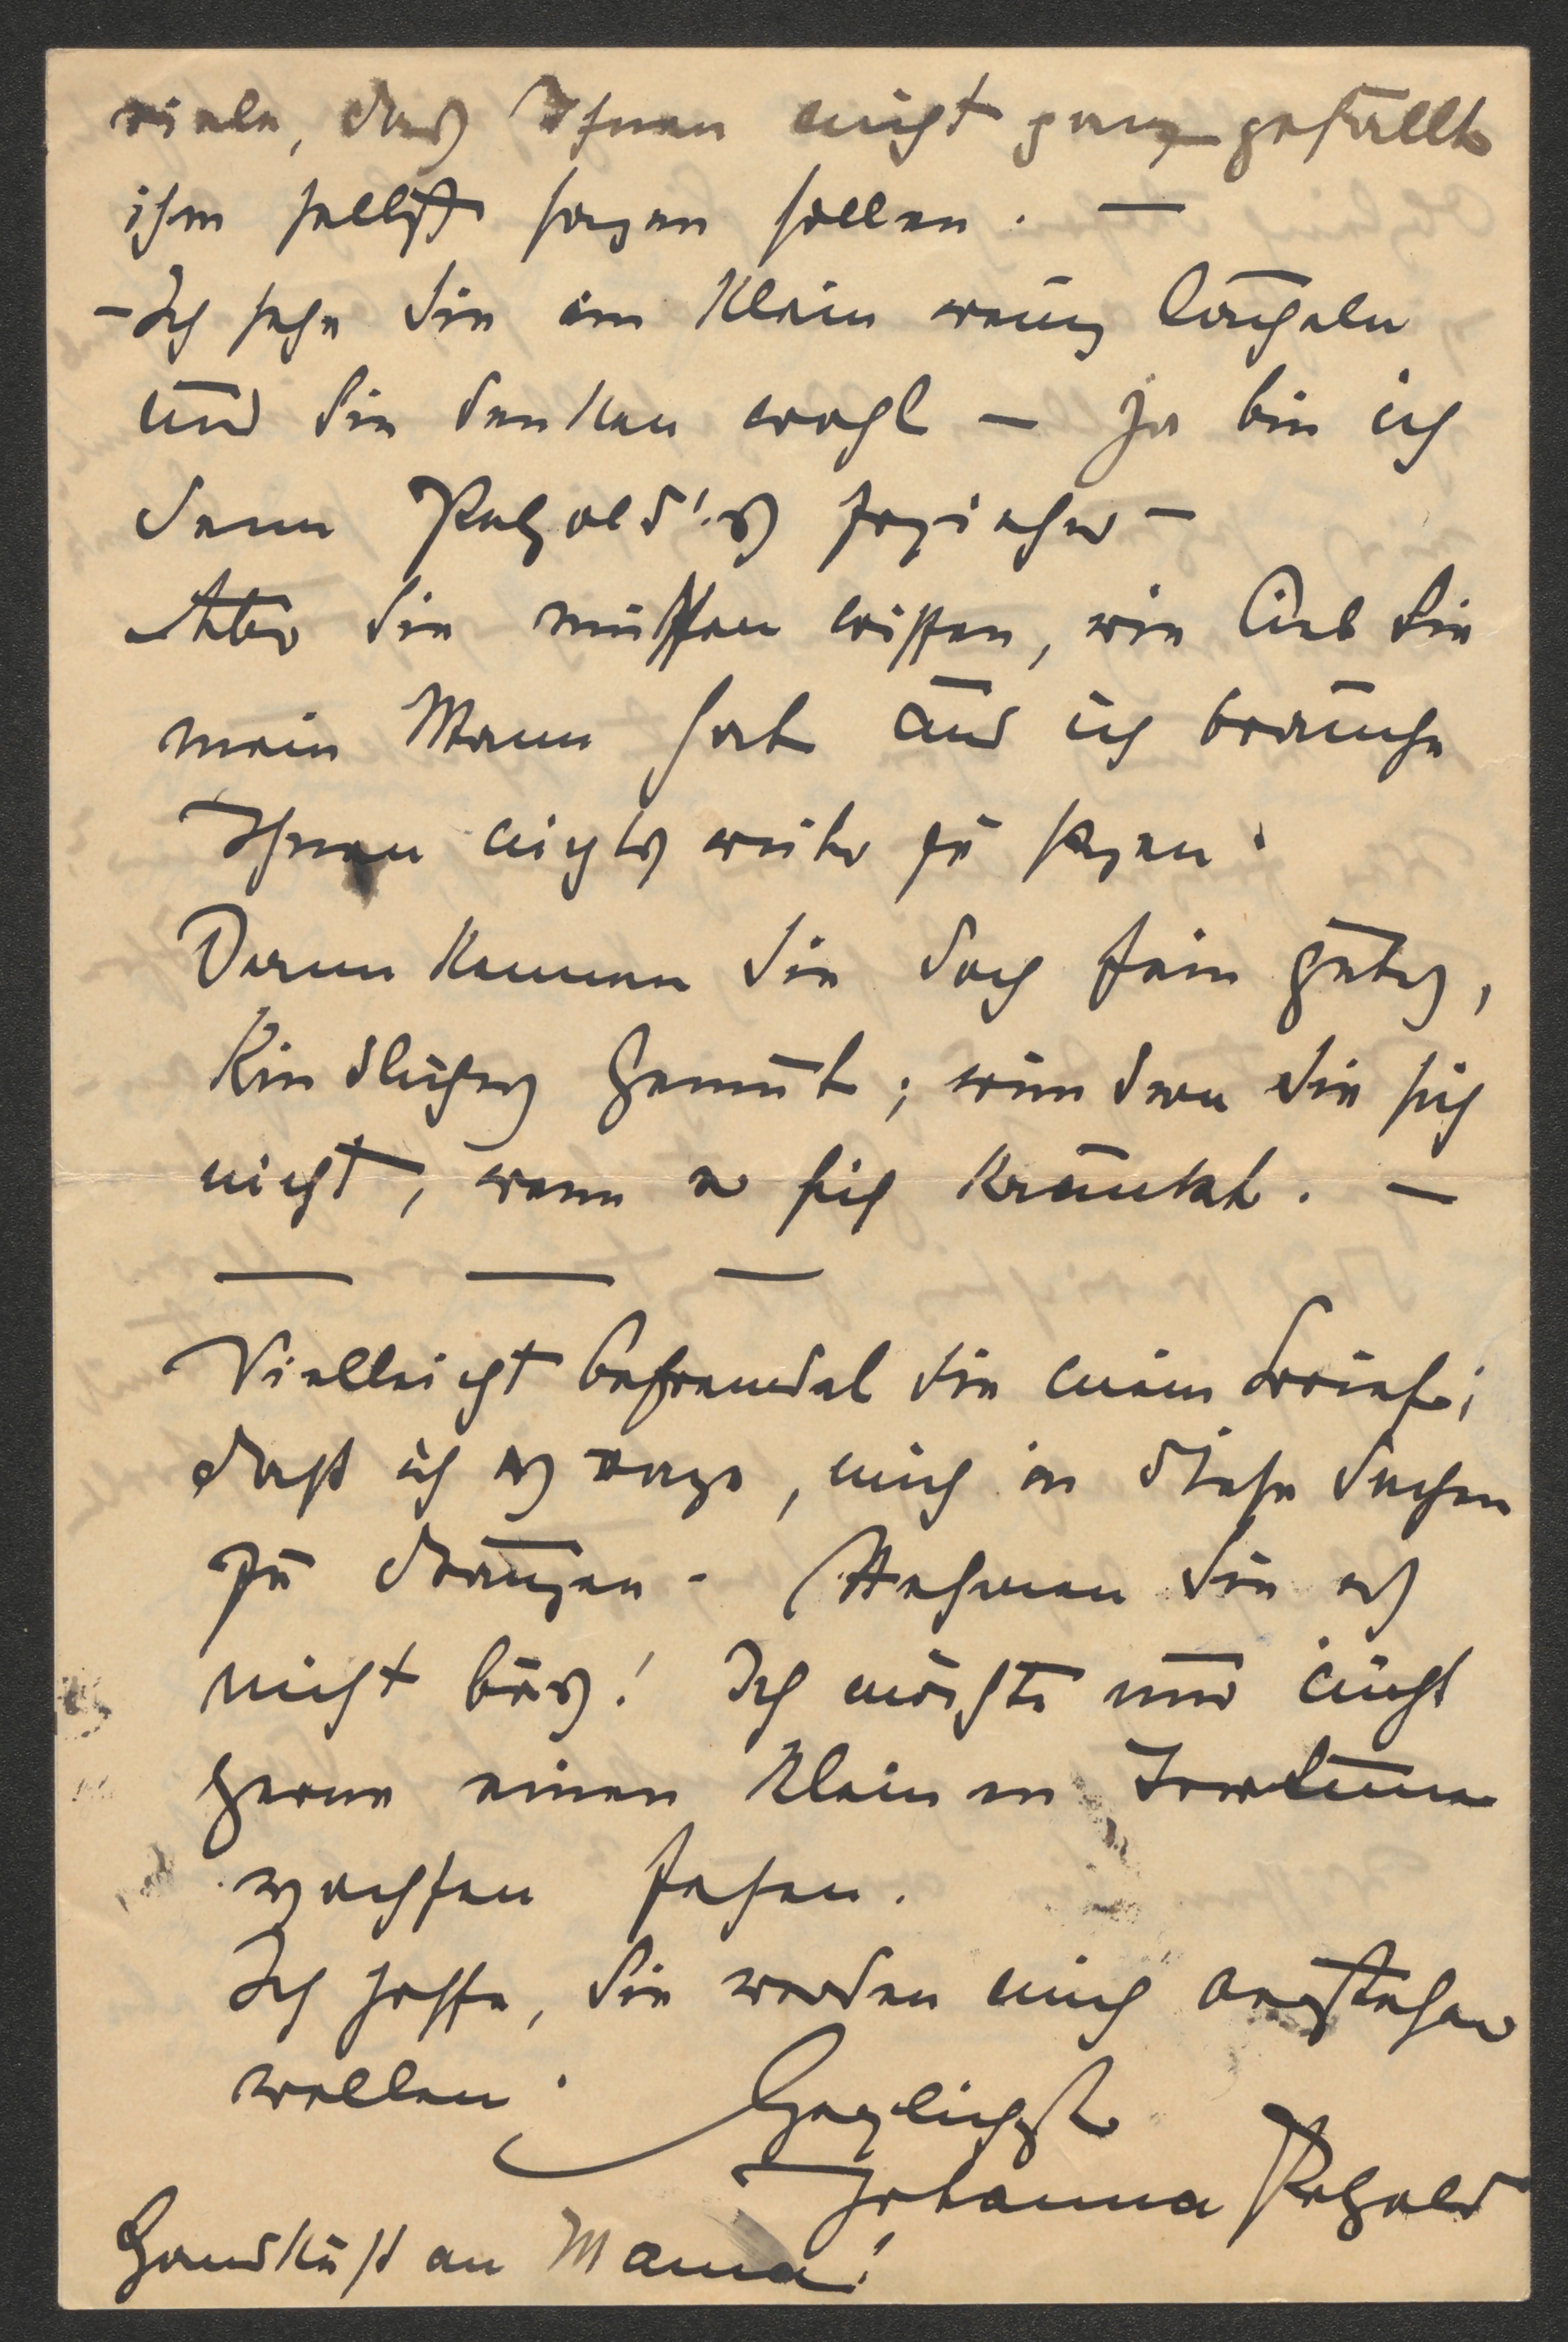 viele, das Ihnen nicht ganz gefällt
ihm selbst sagen sollen. —
– Ich sehe Sie ein klein wenig lächeln
und Sie denken wohl — ja bin ich
denn Petzold's Erzieher –
Aber Sie müssen wissen, wie lieb Sie
mein Mann hat und ich brauche
Ihnen nichts weiter zu sagen.
Dann kennen Sie doch sein gutes,
kindliches Gemüt; wundern Sie sich
nicht, wenn er sich kränkt. —
— — —
Vielleicht befremdet Sie mein Brief;
dass ich es wage, mich in diese Sachen
zu drängen. Nehmen Sie es
nicht bös! Ich möchte nur nicht
gerne einen kleinen Irrtum
wachsen sehen.
Ich hoffe, Sie werden mich verstehen
wollen.
Herzlichst
Johanna Petzold
Handkuss an Mama!